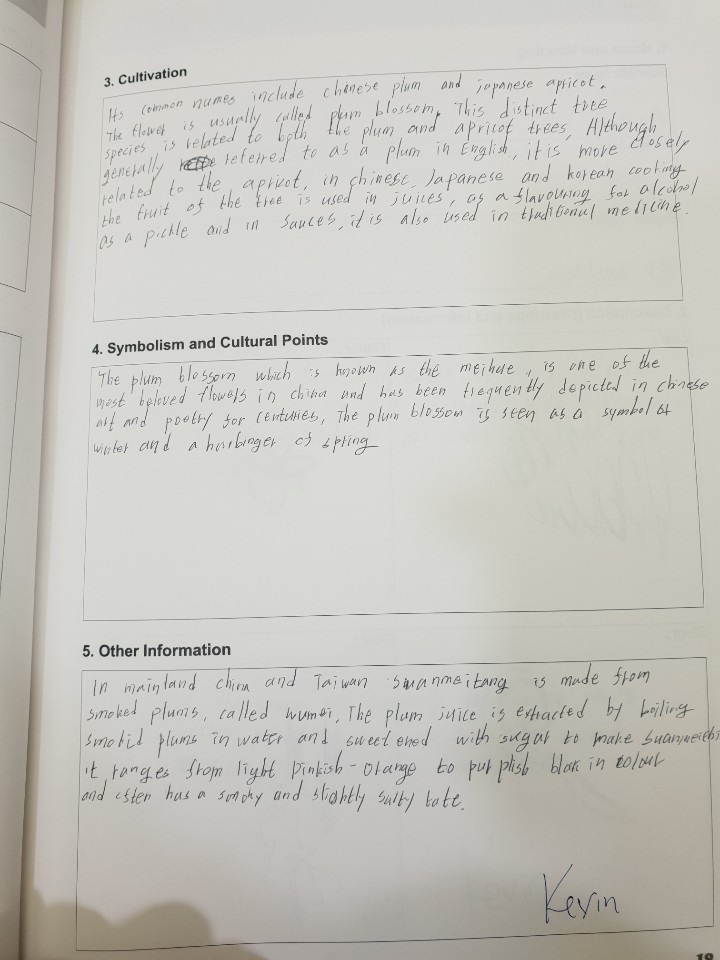 3. Cultivation
Its common names include chinese plum and japanese apricot.
The flower is usually called plum blossom, This distinct tree
species is related to both the plum and apricot trees, Although
generally referred to as a plum in English, it is more closely
related to the apricot, in chinese, Japanese and korean cooking
the fruit of the tree is used in juices, as a flavouring for alcohol
as a pickle and in sauces, it is also used in traditional medicine.
4. Symbolism and Cultural Points
The plum blossom which is known as the meihue, is one of the
most beloved flowers in china and has been frequently depicted in chinese
art and poetry for centuries, The plum blossom is seen as a symbol of
winter and a harbinger of spring
5. Other Information
In mainland china and Taiwan suanmeitang is made from
smoked plums, called wumei, The plum juice is extracted by boiling
smokid plums in water and sweetened with sugar to make
it ranges from light pinkish-orange to purplish in colour
and often has a smoky and slightly salty
Kevin
19